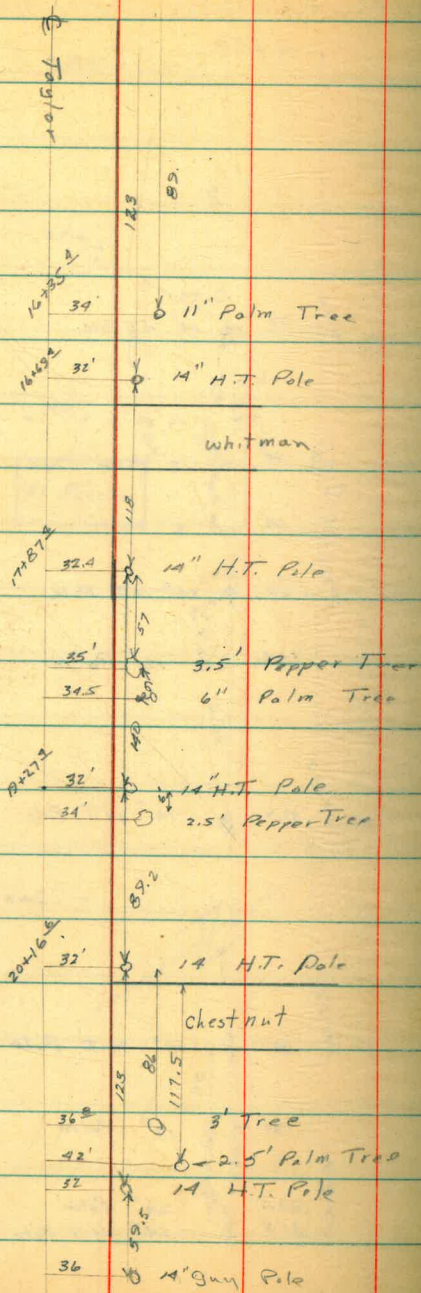 ℄ Taylor
89.
123
16+35 4 34' 11" Palm Tree
16+69 4 32' 14" H.T. Pole
whitman
118
17+87 4 32.4 14" H.T. Pole
57
35' 3.5' Pepper Tree
34.5 6" Palm Tree
140
19+27 4 32' 14" H.T. Pole
6'
34' 2.5' Pepper Tree
89.2
20+16 6 32' 14 H.T. Pole
chestnut
123 86 117.5
36 8 3' Tree
42' 2.5' Palm Tree
32 14 H.T. Pole
59.5
36 14" Guy Pole